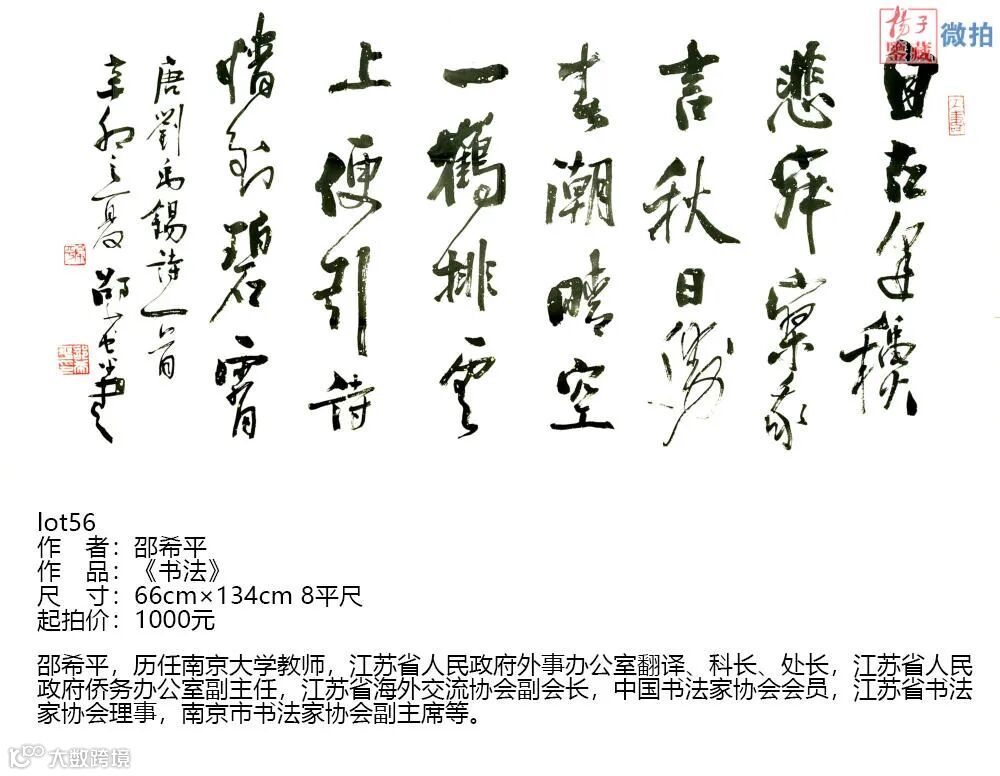 揚子
鑒藏
微拍
自古逢穐
悲寂寥我
言秋日勝
春潮晴空
一鶴排雲
上便引詩
情到碧霄
唐劉禹錫詩一首
辛卯之夏邵希平書
lot56
作 者：邵希平
作 品：《书法》
尺 寸：66cm×134cm 8平尺
起拍价：1000元
邵希平，历任南京大学教师，江苏省人民政府外事办公室翻译、科长、处长，江苏省人民
政府侨务办公室副主任，江苏省海外交流协会副会长，中国书法家协会会员，江苏省书法
家协会理事，南京市书法家协会副主席等。
大数跨境